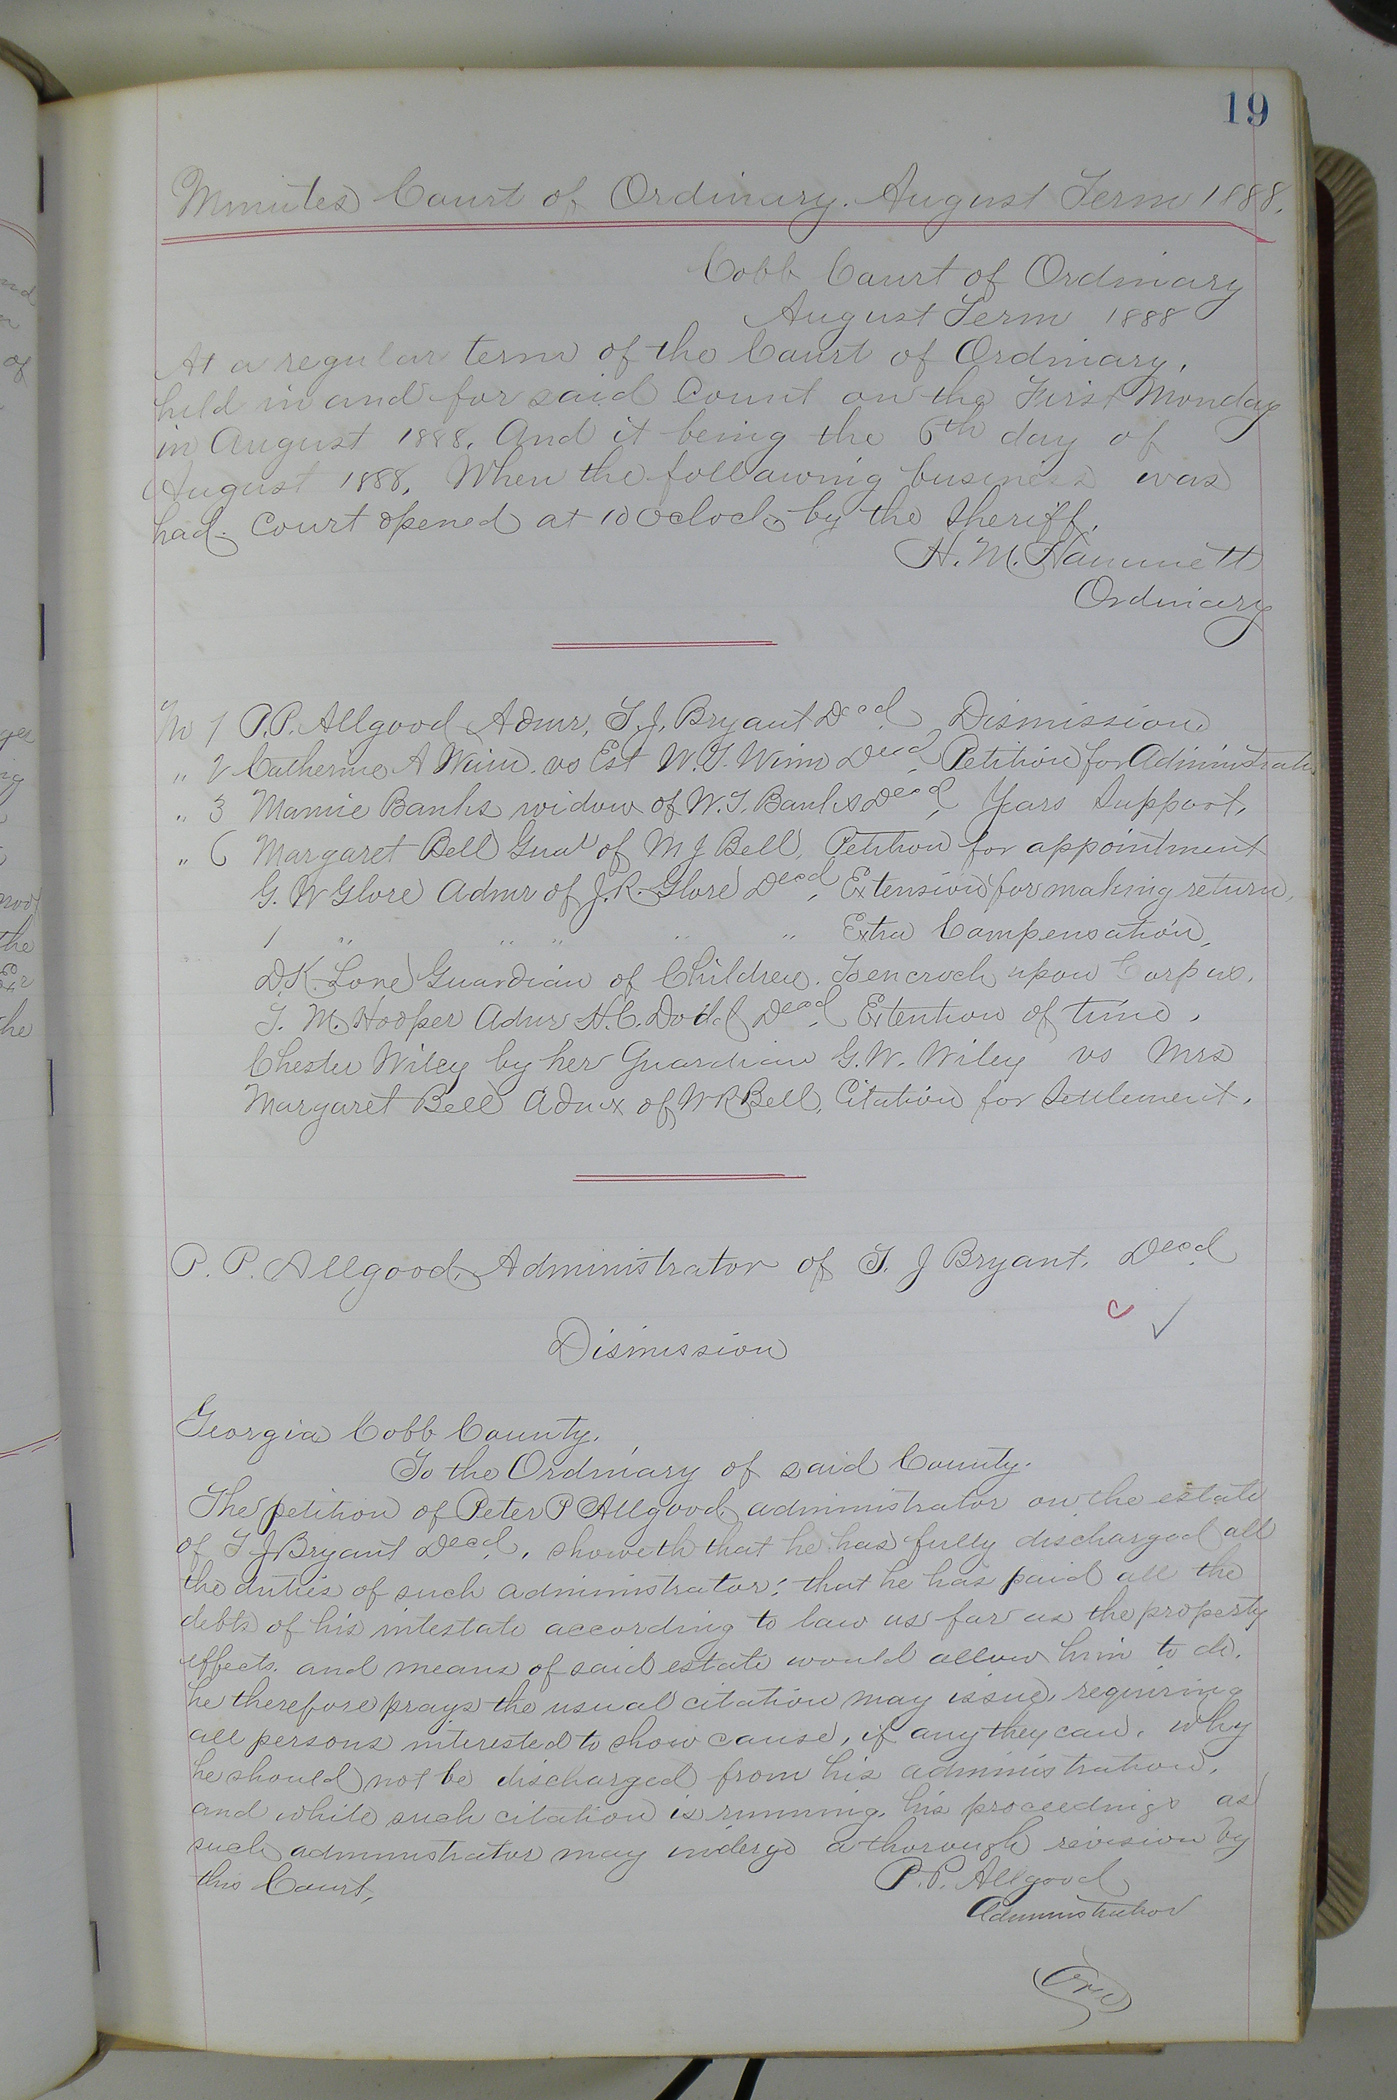 19
Minutes Court of Ordinary. August Term 1888.
Cobb Court of Ordinary
August Term 1888
At a regular term of the Court of Ordinary,
held in and for said Count on the First Monday
in August 1888. And it being the 6th day of
August 1888. When the following business was
had. Court opened at 10 Oclock by the Sheriff.
H. M. Hammett
Ordinary
No 1 P.P. Allgood Admr, T.J. Bryant Decd Dismission.
" 2 Catherine A Winn vs Est W.J. Winn Decd, Petition for Administratn
" 3 Mamie Banks widow of W.T. Banks Decd, Years Support.
" 6 Margaret Bell Gua' of M J Bell, Petition for appointment
G. W Glore Admr of J.R. Glore Decd, Extension for making return.
" " " " " Extra Compensation,
D.K. Love Guardian of Children. To encroch upon Corpus.
T. M. Hooper Admr H.C. Dodd Decd, Extention of time.
Chester Wiley by her Guardian G.W. Wiley vs Mrs
Margaret Bell Admx of W R Bell, Citation for Settlement.
P. P. Allgood, Administrator of T. J Bryant. Decd
Dismission
Georgia Cobb County.
To the Ordinary of said County.
The petition of Peter P Allgood administrator on the estate
of T J Bryant Decd, showeth that he has fully discharged all
the duties of such administrator: that he has paid all the
debts of his intestate according to law as far as the property
effects. and means of said estate would allow him to do.
he therefore prays the usual citation may issue, requiring
all persons interested to show cause, if any they can. why
he should not be discharged from his administration,
and while such citation is running, his proceedings as
such administrator may undergo a thorough revision by
this Court,
P.P. Allgood
Administrator